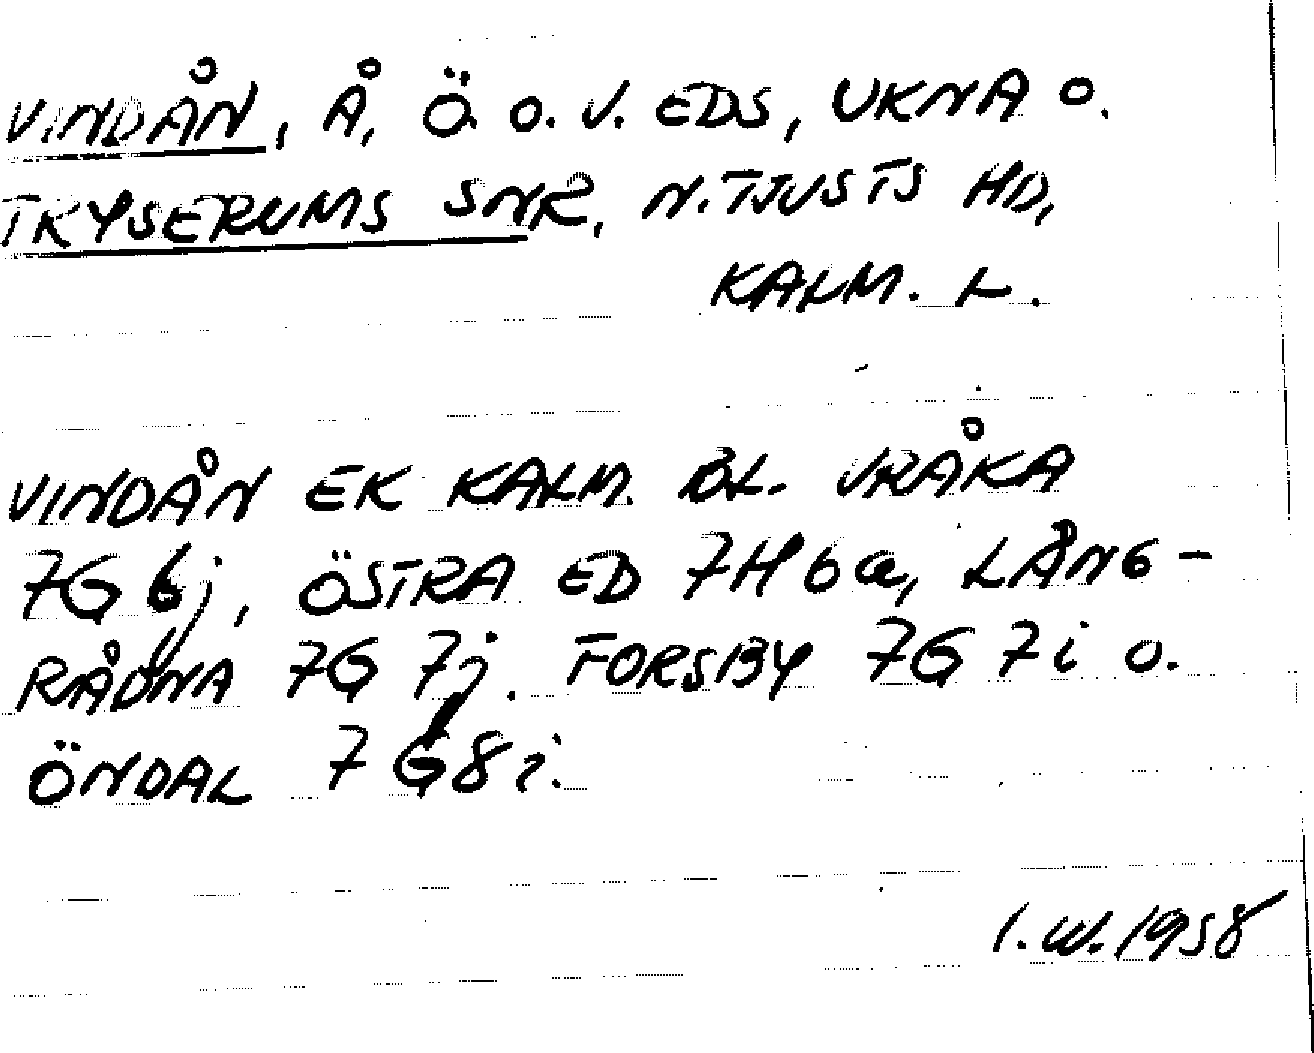 VINDÅN, Å, Ö. O. V. EDS, UKNA O.
TRYSERUMS SNR, N. TJUSTS HD,
KALM. L.
VINDÅN EK KALM. BL. VRÅKA
7G 6j, ÖSTRA ED 7H 6a, LÅNG-
RÅDNA 7G 7j. FORSBY 7G 7i O.
ÖNDAL 7G8i.
I.W. 1958